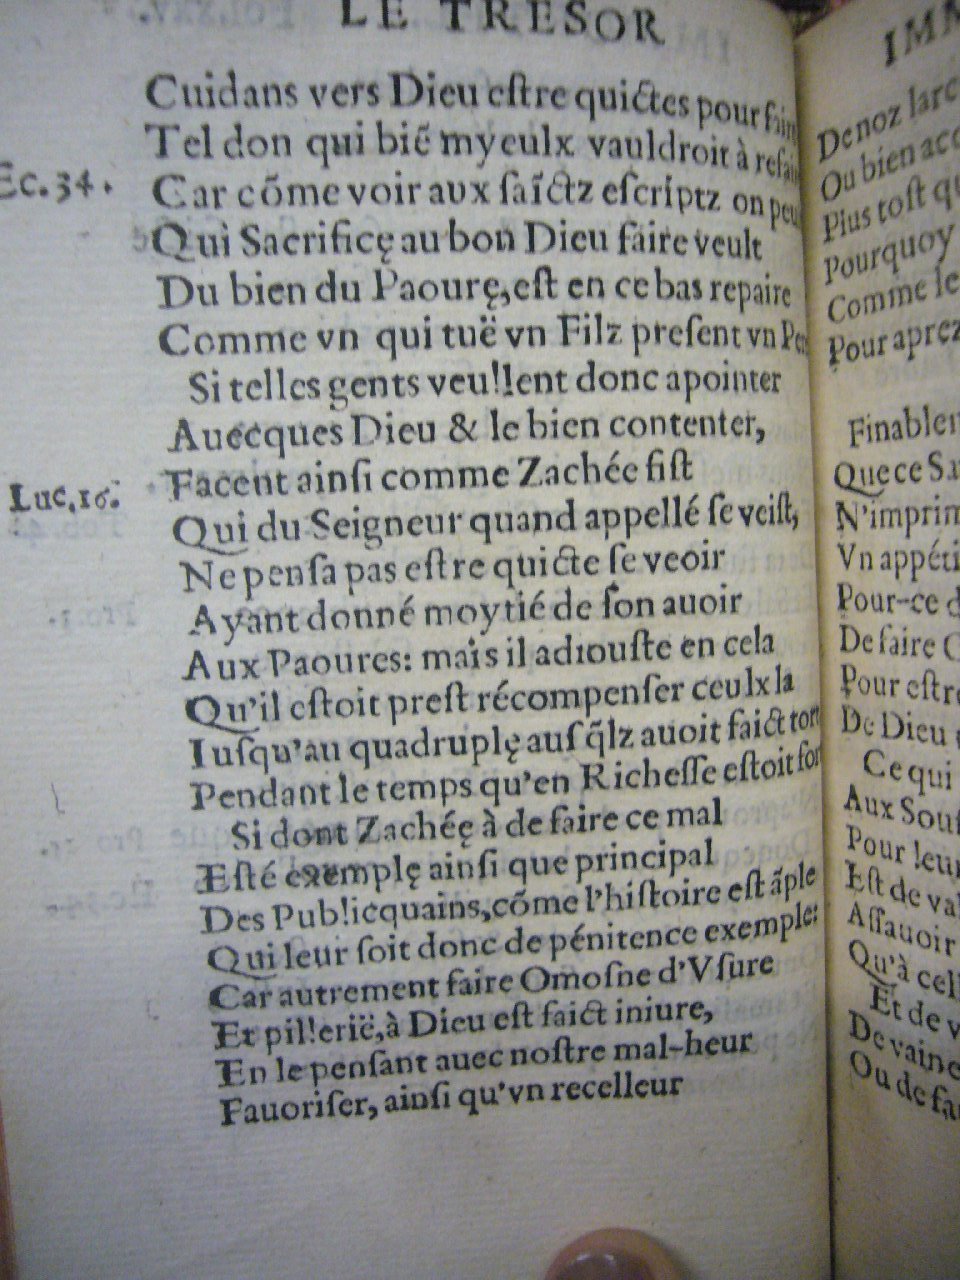 LE TRESOR
Cuidans vers Dieu eſtre quictes pour
Tel don qui biẽ myeulx vauldroit à
Ec.34.
Car cõme voir aux ſaĩctz eſcriptz on
Qui Sacrificę au bon Dieu faire veult
Du bien du Paourę, eſt en ce bas repaire
Comme vn qui tuë vn Filz preſent vn
Si telles gents veullent donc apointer
Auecques Dieu & le bien contenter,
Luc.19.
Facent ainſi comme Zachée fiſt
Qui du Seigneur quand appellé ſe veiſt,
Ne penſa pas eſtre quicte ſe veoir
Ayant donné moytié de ſon auoir
Aux Paoures: mais il adiouſte en cela
Qu'il eſtoit preſt récompenſer ceulx la
Iuſqu'au quadruplę auſq̃lz auoit faict tort
Pendant le temps qu'en Richeſſe eſtoit fort
Si dont Zachéę à de faire ce mal
Eſté exemplę ainſi que principal
Des Publicquains, cõme l'hiſtoire eſt ãple
Qui leur ſoit donc de pénitence exemple:
Car autrement faire Omoſne d'Vſure
Et pillerië, à Dieu eſt faict iniure,
En le penſant auec noſtre mal-heur
Fauoriſer, ainſi qu'vn recelleur
De noz
Ou bien
Plus toſt
Pourquoy
Comme
Pour aprez
Que ce
Vn
Pour-ce
De faire
Pour
De Dieu
Ce qui
Aux
Pour leur
Eſt de
Aſſauoir
Qu'à
Et de
De
Ou de